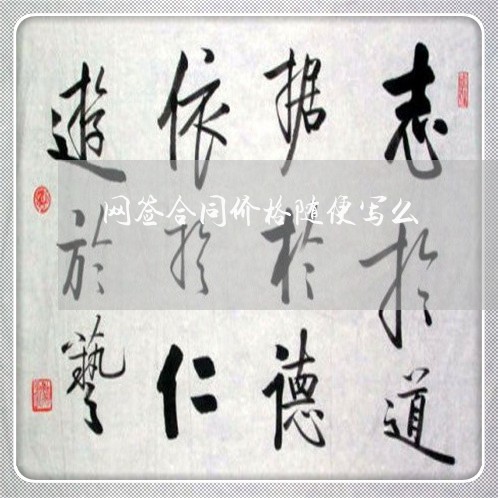 志於道
据於德
依於仁
遊於藝
网签合同价格随便写么